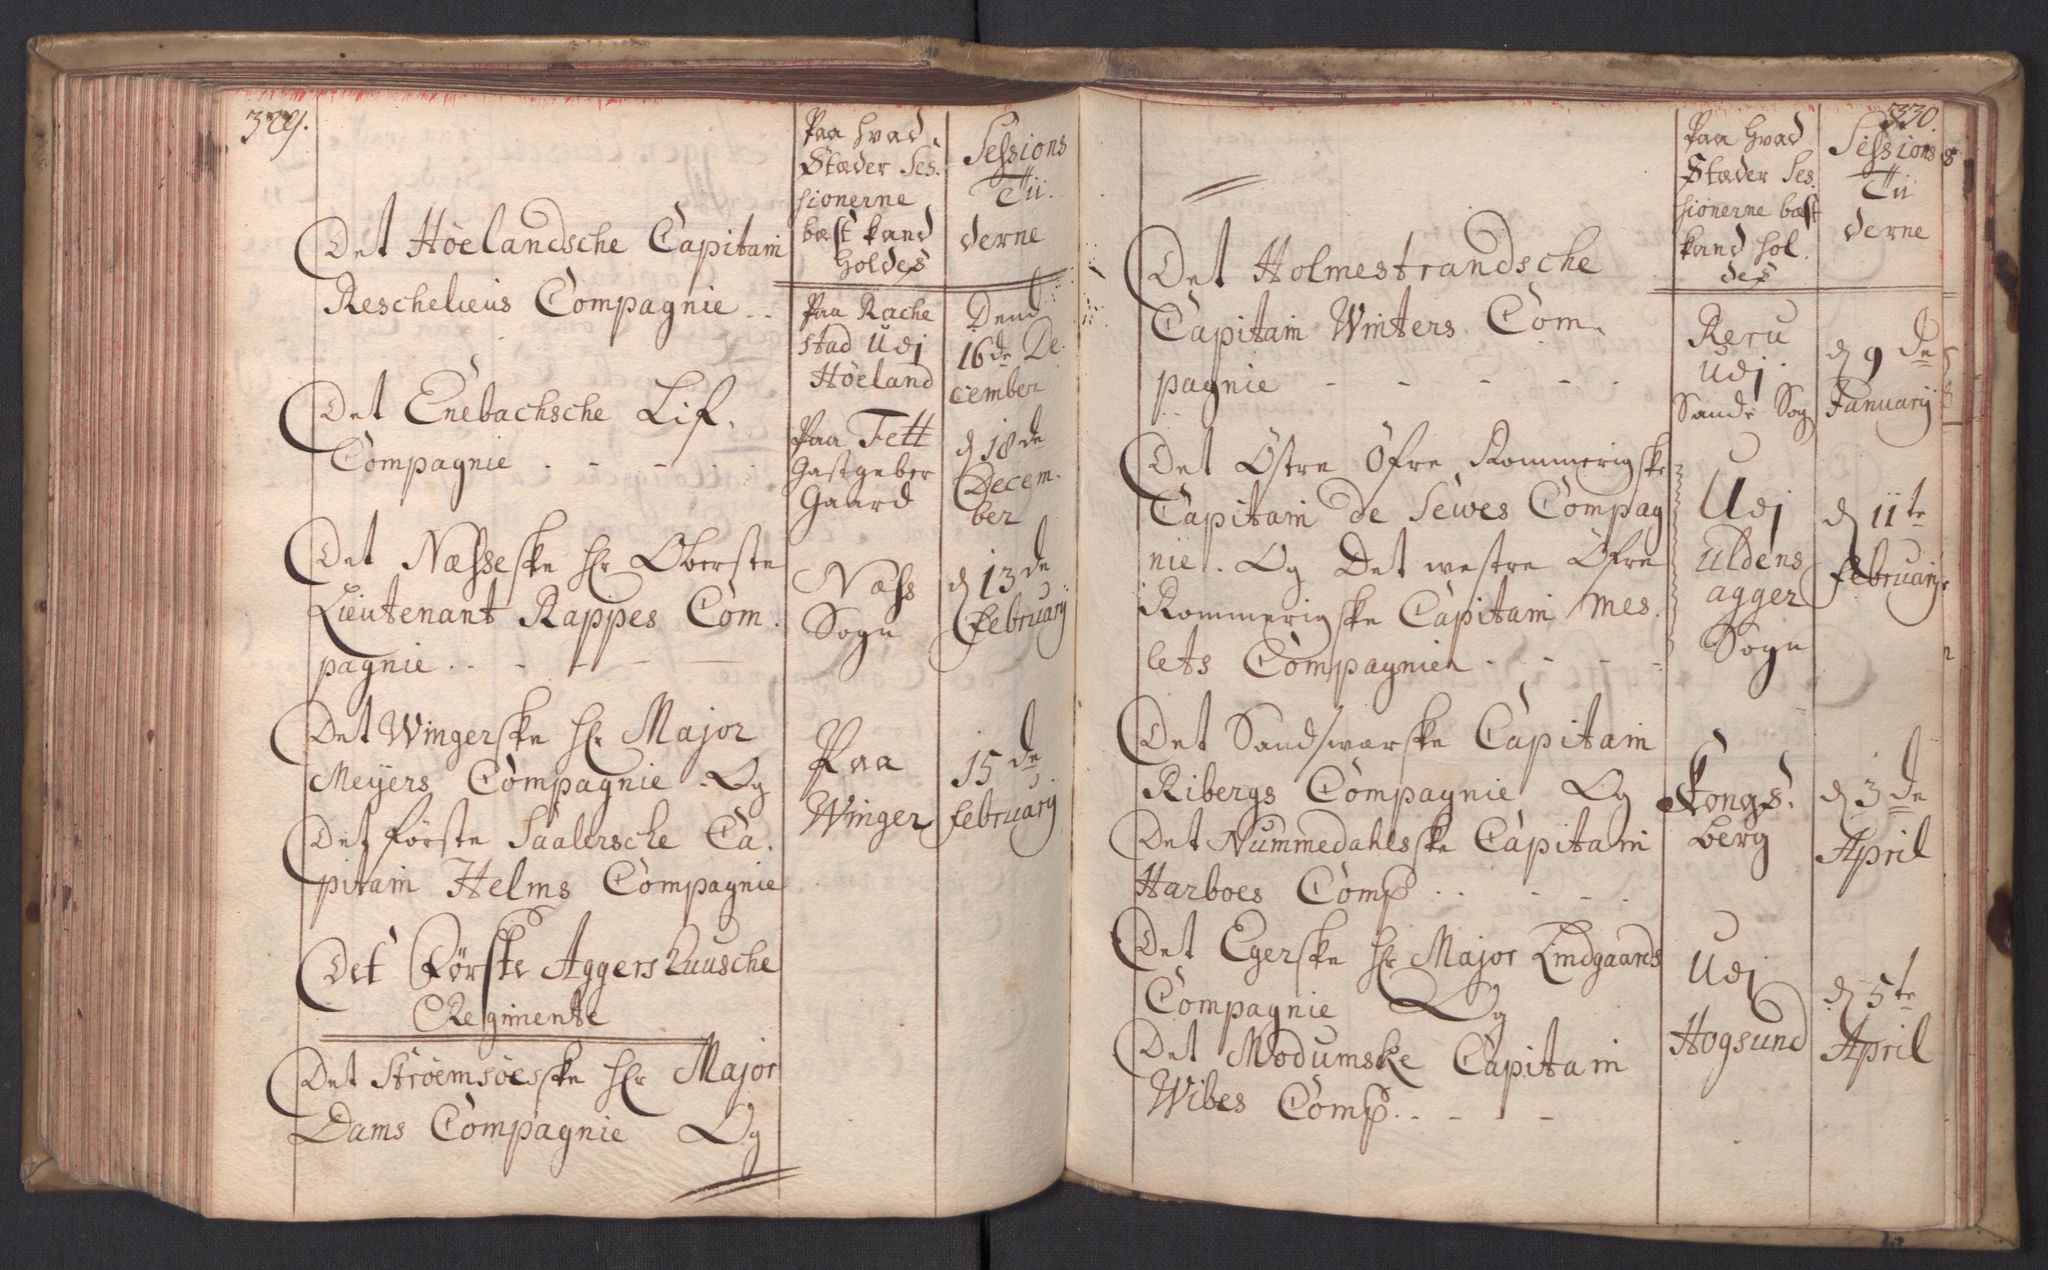 329.
Paa hvad
Stæder Ses-
sionerne
bæst kand
holdes
Sessions
Tii-
derne
Det Höelandsche Capitain
Reschelieus Compagnie . .
Paa Rache
stad Udj
Höeland
Dend
16de De-
cember
Det Enebachsche Lif-
Compagnie . - - - . .
Paa Tett
Gastgeber
Gaard
d 18de
Decem-
ber
Det Næsseske Hr Oberste
Lieutenant Rappes Com-
pagnie . - - - -
Næss
Sogn
d 13de
Februarij
Det Wingerske Hr Major
Meijers Compagnie Og
Det förste Saalersche Ca-
pitain Helms Compagnie
Paa
Winger
15de
Februarij
Det Förske Aggershuusche
Regimente
Det Ströemsöesske Hr Major
Dams Compagnie Og
330.
Paa Hvad
Stæder Ses-
sionerne bæst
kand hol-
des
Sessions
Tii
derne
Det Holmestrandsche
Capitain Winters Com-
pagnie - - - - -
Reru
Udj
Sande Sog
d 9de
Januarij
Det Östre Öfre Rommerigske
Capitain de Sewes Compag
nie . Og Det westre Öfre
Rommerigske Capitain Mes-
lets Compagnien . - - -
Udj
Uldens
agger
Sogn
d 11te
Februarij
Det Sandswærske Capitain
Ribergs Compagnie Og
Det Nummedahlsske Capitain
Harboes Comp . . - - - .
Kongs-
berg
d 3de
April
Det Egerske Hr Major Lindgaards
Compagnie Og
Det Modumske Capitain
Wibes Comp. - - - -
Udj
Hogsund
d 5te
April